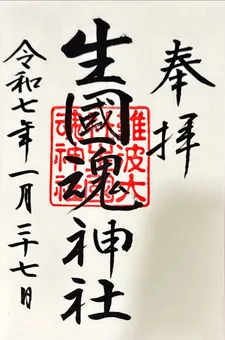 奉拝
生國魂神社
令和七年一月二十七日
難波大
魂神社